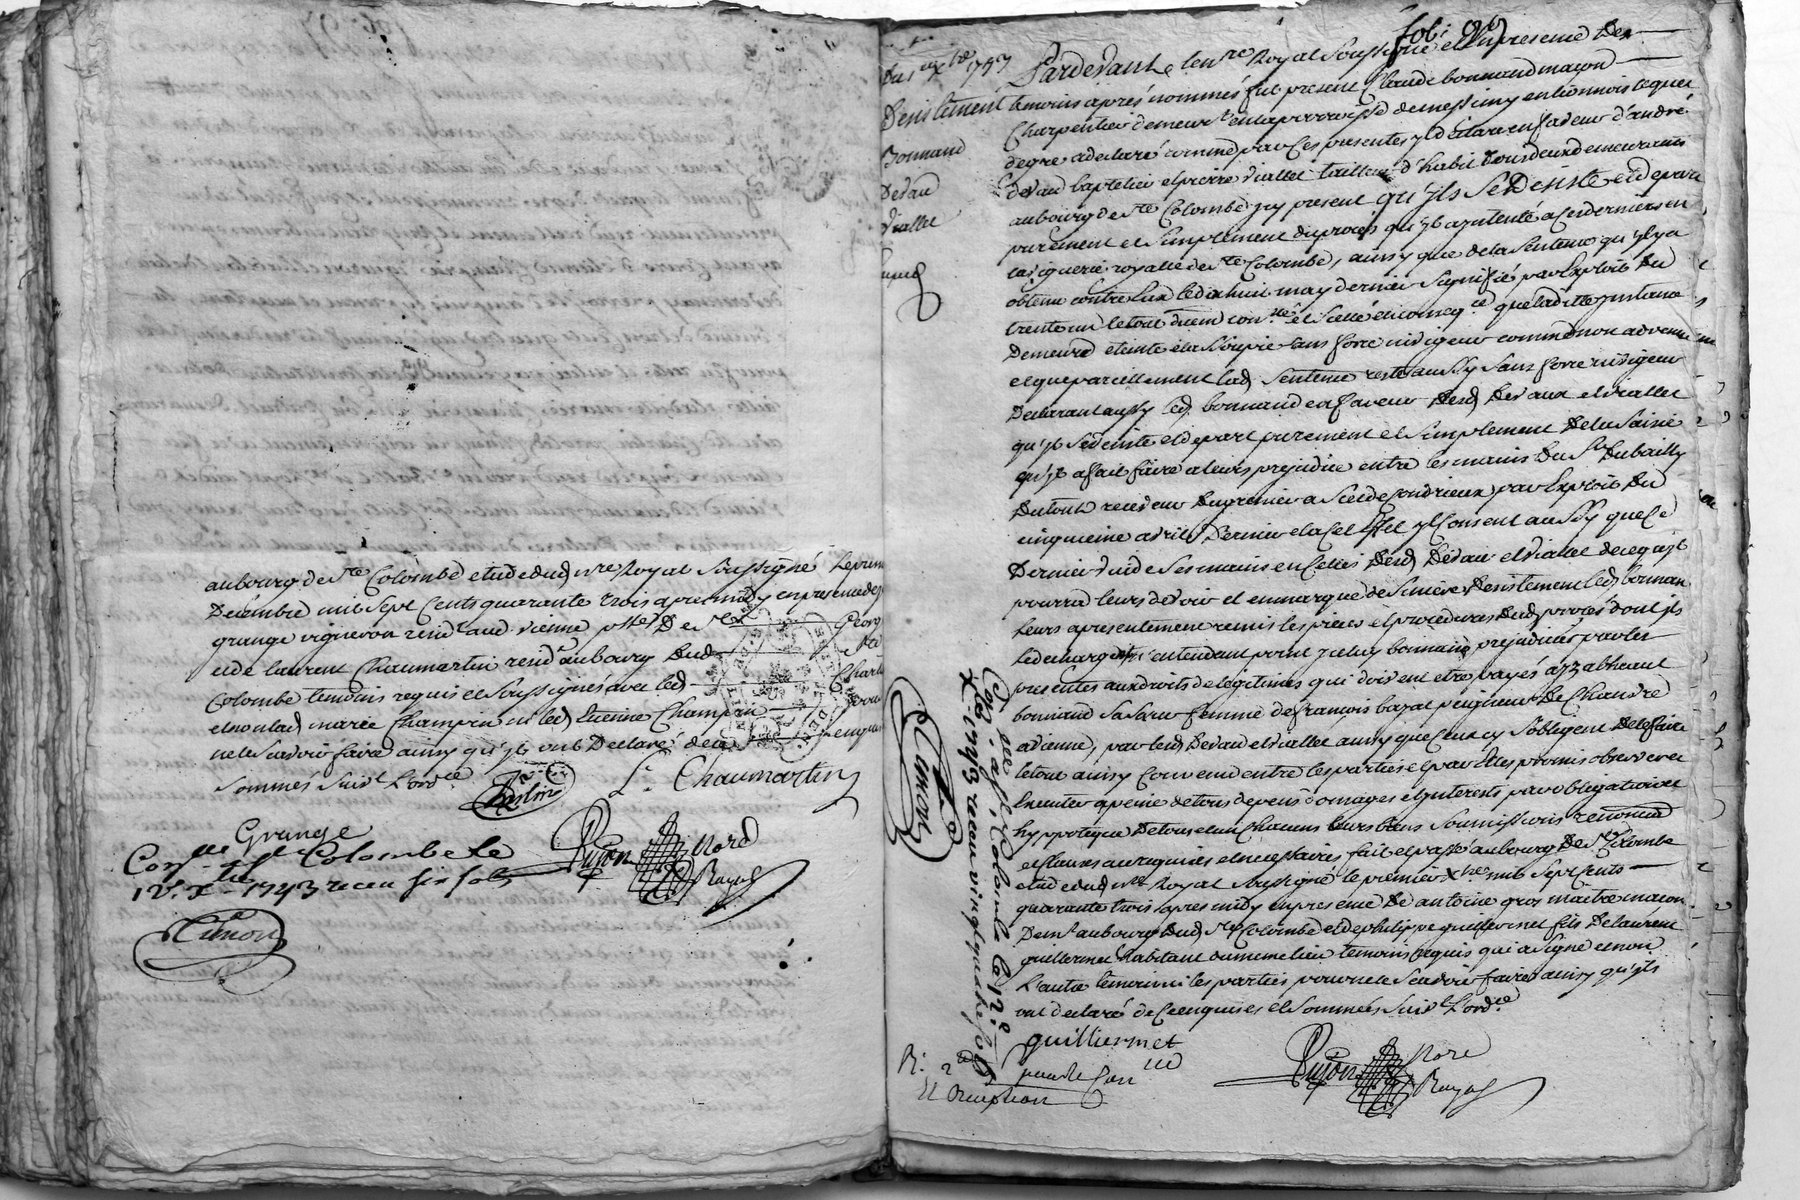 au bourg de Ste Colombe etude dud nre Royal soussigné le prem
Decembre mil sept cents quarante trois apres midy en presence de
grange vigneron resid.t aud. vienne De
et de laurent Chaumartin resid.t au bourg dud
Colombe temoins requis et soussignés avec led
et non lad marie Champin ni led Etienne Champin
ne le scavoir faire ainsy qu'yls ont Declaré de ce
sommés suiv.t l'ord.ce
L. Chaumartin
Grange
Con.lle a Ste Colombe le
12e Xbre 1743 receu six sols
Pujon Nore Royal
Simon
Georg
Ste
Charle
enquis
fol: 96
Du 1er Xbre 1743
Desistement
Bonnand
Devau
Viallet
Pardevant le nre Royal soussigné et en presence Des
temoins aprés nommés fut present Claude bonnand maçon
Charpentier demeur.t en la parroisse de messimy en lionnois lequel
degre a declaré comme par ces presentes yl déclare en faveur d'andré
devau baptelier et pierre viallet tailleur d'habit tous deux demeurants
au bourg de Ste Colombe jcy present qu'yls se Desiste et depart
purement et simplement du procés qu'yl a jntenté a ces derniers en
la viguerie royalle de Ste Colombe, ainsy que de la sentence qu'yl y a
obtenu contre Eux le dix huit may dernier signifiée par Exploit du
trente un le tout duem.t con.llé et scellé en conseq.ce que laditte jnstance
Demeure eteinte et assoupie sans force ni vigeur comme non advenue
et que pareillement lad. sentence reste aussy sans force ni vigeur
Declarant aussy led. bonnand en faveur desd. Devaux et viallet
qu'yl se desiste et depart purement et simplement De la saisie
qu'yl a fait faire a leurs prejudice entre les mains du Sr Dubailly
Dutout receveur du grenier a Scel de Condrieux par Exploit du
cinquieme avril Dernier et a cet effet yl consent aussy que ce
Dernier vuide ses mains en celles desd. Devau et viallet de ce qu'yl
pourra leurs devoir et en marque de sincere Desistement led. bonnand
leurs a presentement remis les pieces et procedures dud. procés dont ils
le dechargent n'entendant point jceluy bonnand prejudicier par les
presentes aux droits de legitimes qui doivent etre payés a jzabheaut
bonnand sa soeur femme de françois bazat peigneur De Chanvre
a vienne, par lesd. Devau et viallet ainsy que ceux cy s'obligent De le faire
le tout ainsy convenu entre les parties et par Elles promis observer et
Executer a peine de tous depens domages et jnterests par obligation et
hyppotéque De tous et un chacuns leurs biens soumissions renonciad
et clauses au requises et necessaires fait et passé au bourg de Ste Colombe
etude dud. nre Royal soussigné le premier Xbre mil sept cents
quarante trois apres midy en presence De antoine gros maitre maçon
Dem.t au bourg dud. Ste Colombe et de philippe guilliermet fils De laurent
guilliermet habitant du meme lieu temoins requis qui a signé et non
L'autre temoin ni les parties pour ne le scavoir faire ainsy qu'yls
ont declaré de ce enquises et sommées suiv.t l'ord.ce
guilliermet
Pujon Nore Royal
Con.lle a Ste Colombe le 12e
Xbre 1743 receu vingt quatre sols
Simon